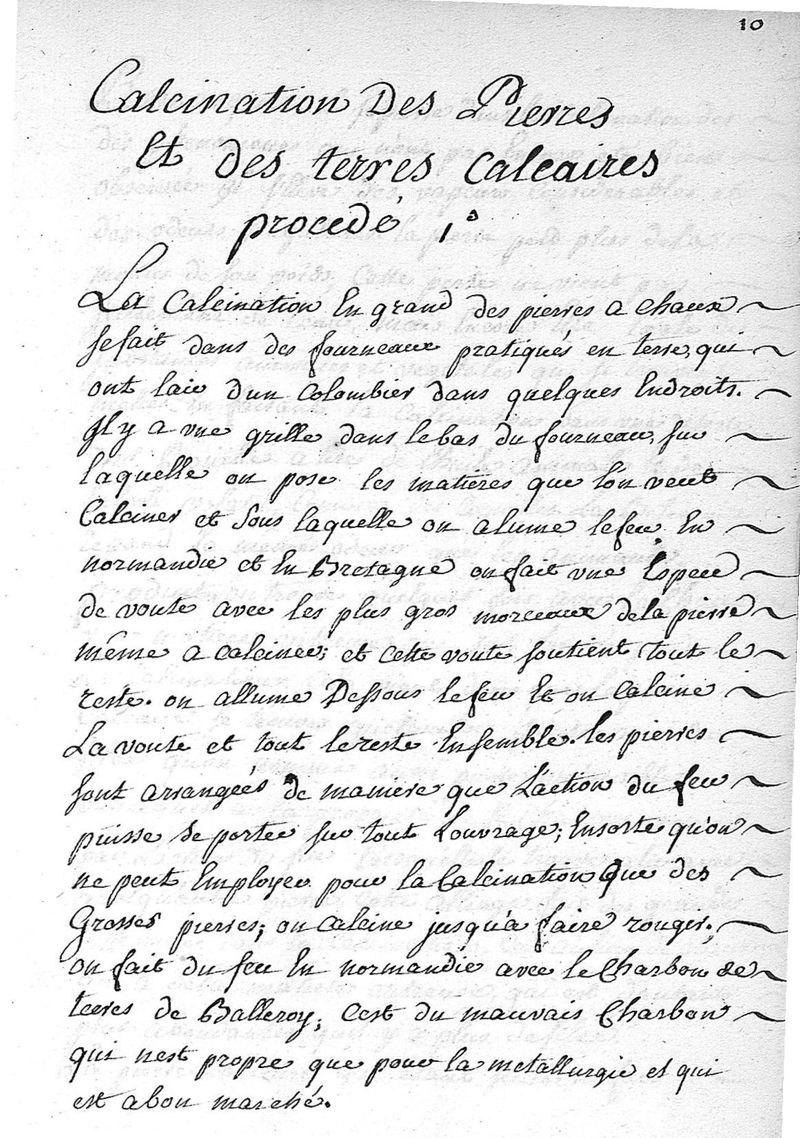 10
Calcination Des Pierres
Et des terres calcaires
procedé 1º
La Calcination En grand des pierres a chaux
se fait dans des fourneaux pratiqués en terre, qui
ont lair dun Colombier dans quelques Endroits.
Il y a vne grille dans le bas du fourneau, sur
laquelle on pose les matieres que l'on veut
Calciner et sous laquelle on alume le feu. En
normandie et En Bretagne on fait vne Espece
de voute avec les plus gros morceaux de la pierre
même a calciner; et cette voute soutient tout le
reste. on allume Dessous le feu Et on Calcine
La voute et tout le reste Ensemble. les pierres
sont arrangées de maniere que L'action du feu
puisse se porter sur tout L'ouvrage; Ensorte qu'on
ne peut Employer pour la Calcination Que des
Grosses pierres; on calcine jusqu'a faire rouger.
on fait du feu En normandie avec le Charbon de
terres de Balleroy; C'est du mauvais Charbon
qui n'est propre que pour la metallurgie et qui
est a bon marché.